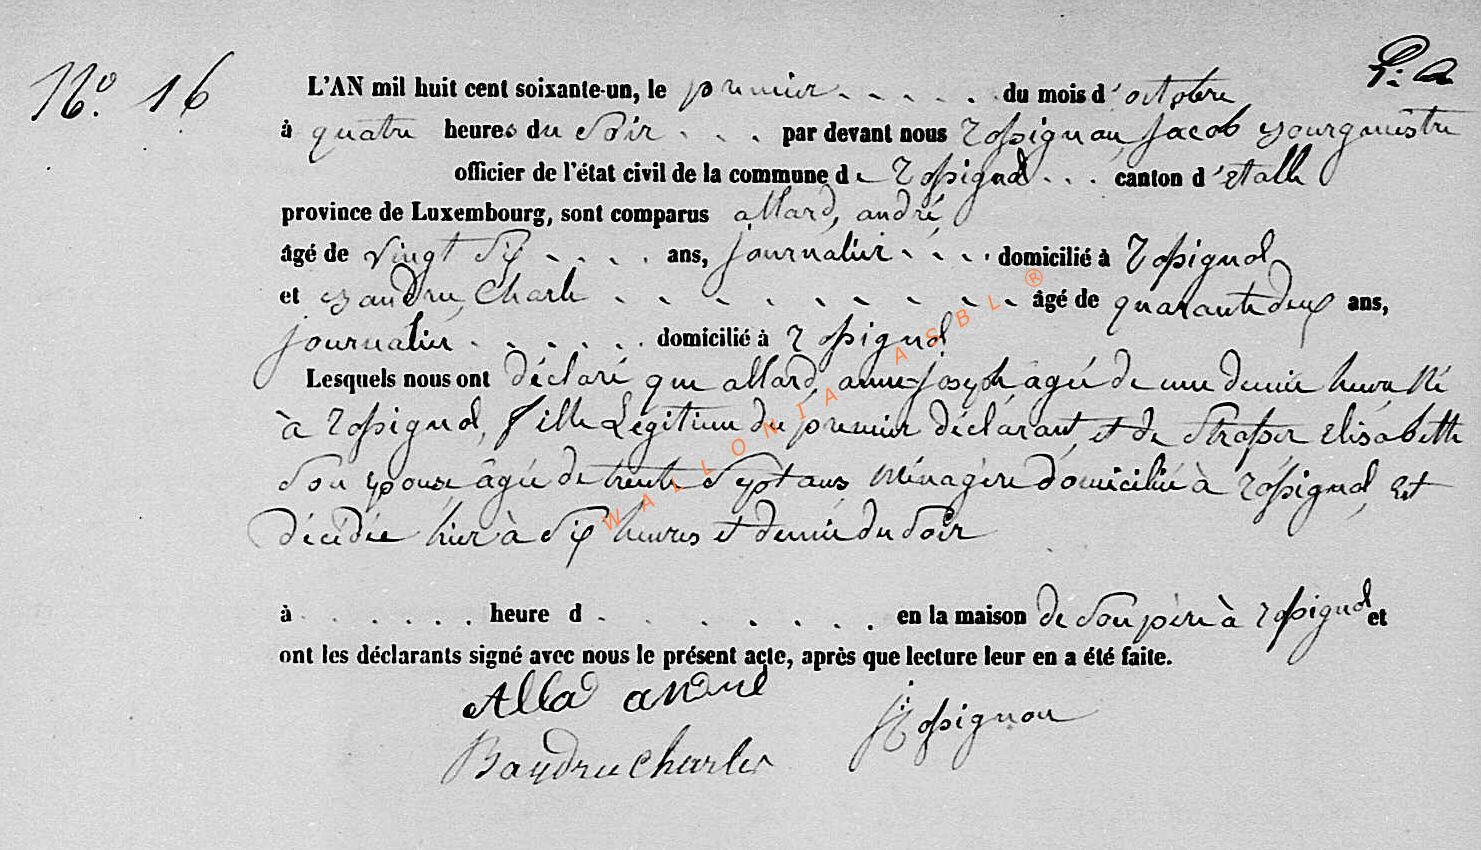 N.o 16
L'AN mil huit cent soixante-un, le premier - - - - . du mois d'octobre
à quatre heures du soir - - . par devant nous Rossignon, Jacob Bourgmestre
officier de l'état civil de la commune de Rossignol . . . canton d'Etalle
province de Luxembourg, sont comparus allard, andré,
âgé de vingt six - - - . ans, journalier - - - . domicilié à Rossignol
et Baudru, Charle - - - - - - - - - - âgé de quarante deux ans,
journalier - - - - - . domicilié à Rossignol
Lesquels nous ont déclaré que allard, anne-joseph agée de une demie heure, Né
à Rossignol, fille Légitime du premier déclarant, et de Strasser Elisabette
son épouse âgée de trente sept ans, Ménagère domiciliée à Rossignol, est
décédée hier à six heures et demie du soir
à . . . . . . . heure d . . . . . . . . en la maison de son père à Rossignol et
ont les déclarants signé avec nous le présent acte, après que lecture leur en a été faite.
Allad andré
J: Rossignon
Baudru charles
WALLONIA ASBL ®